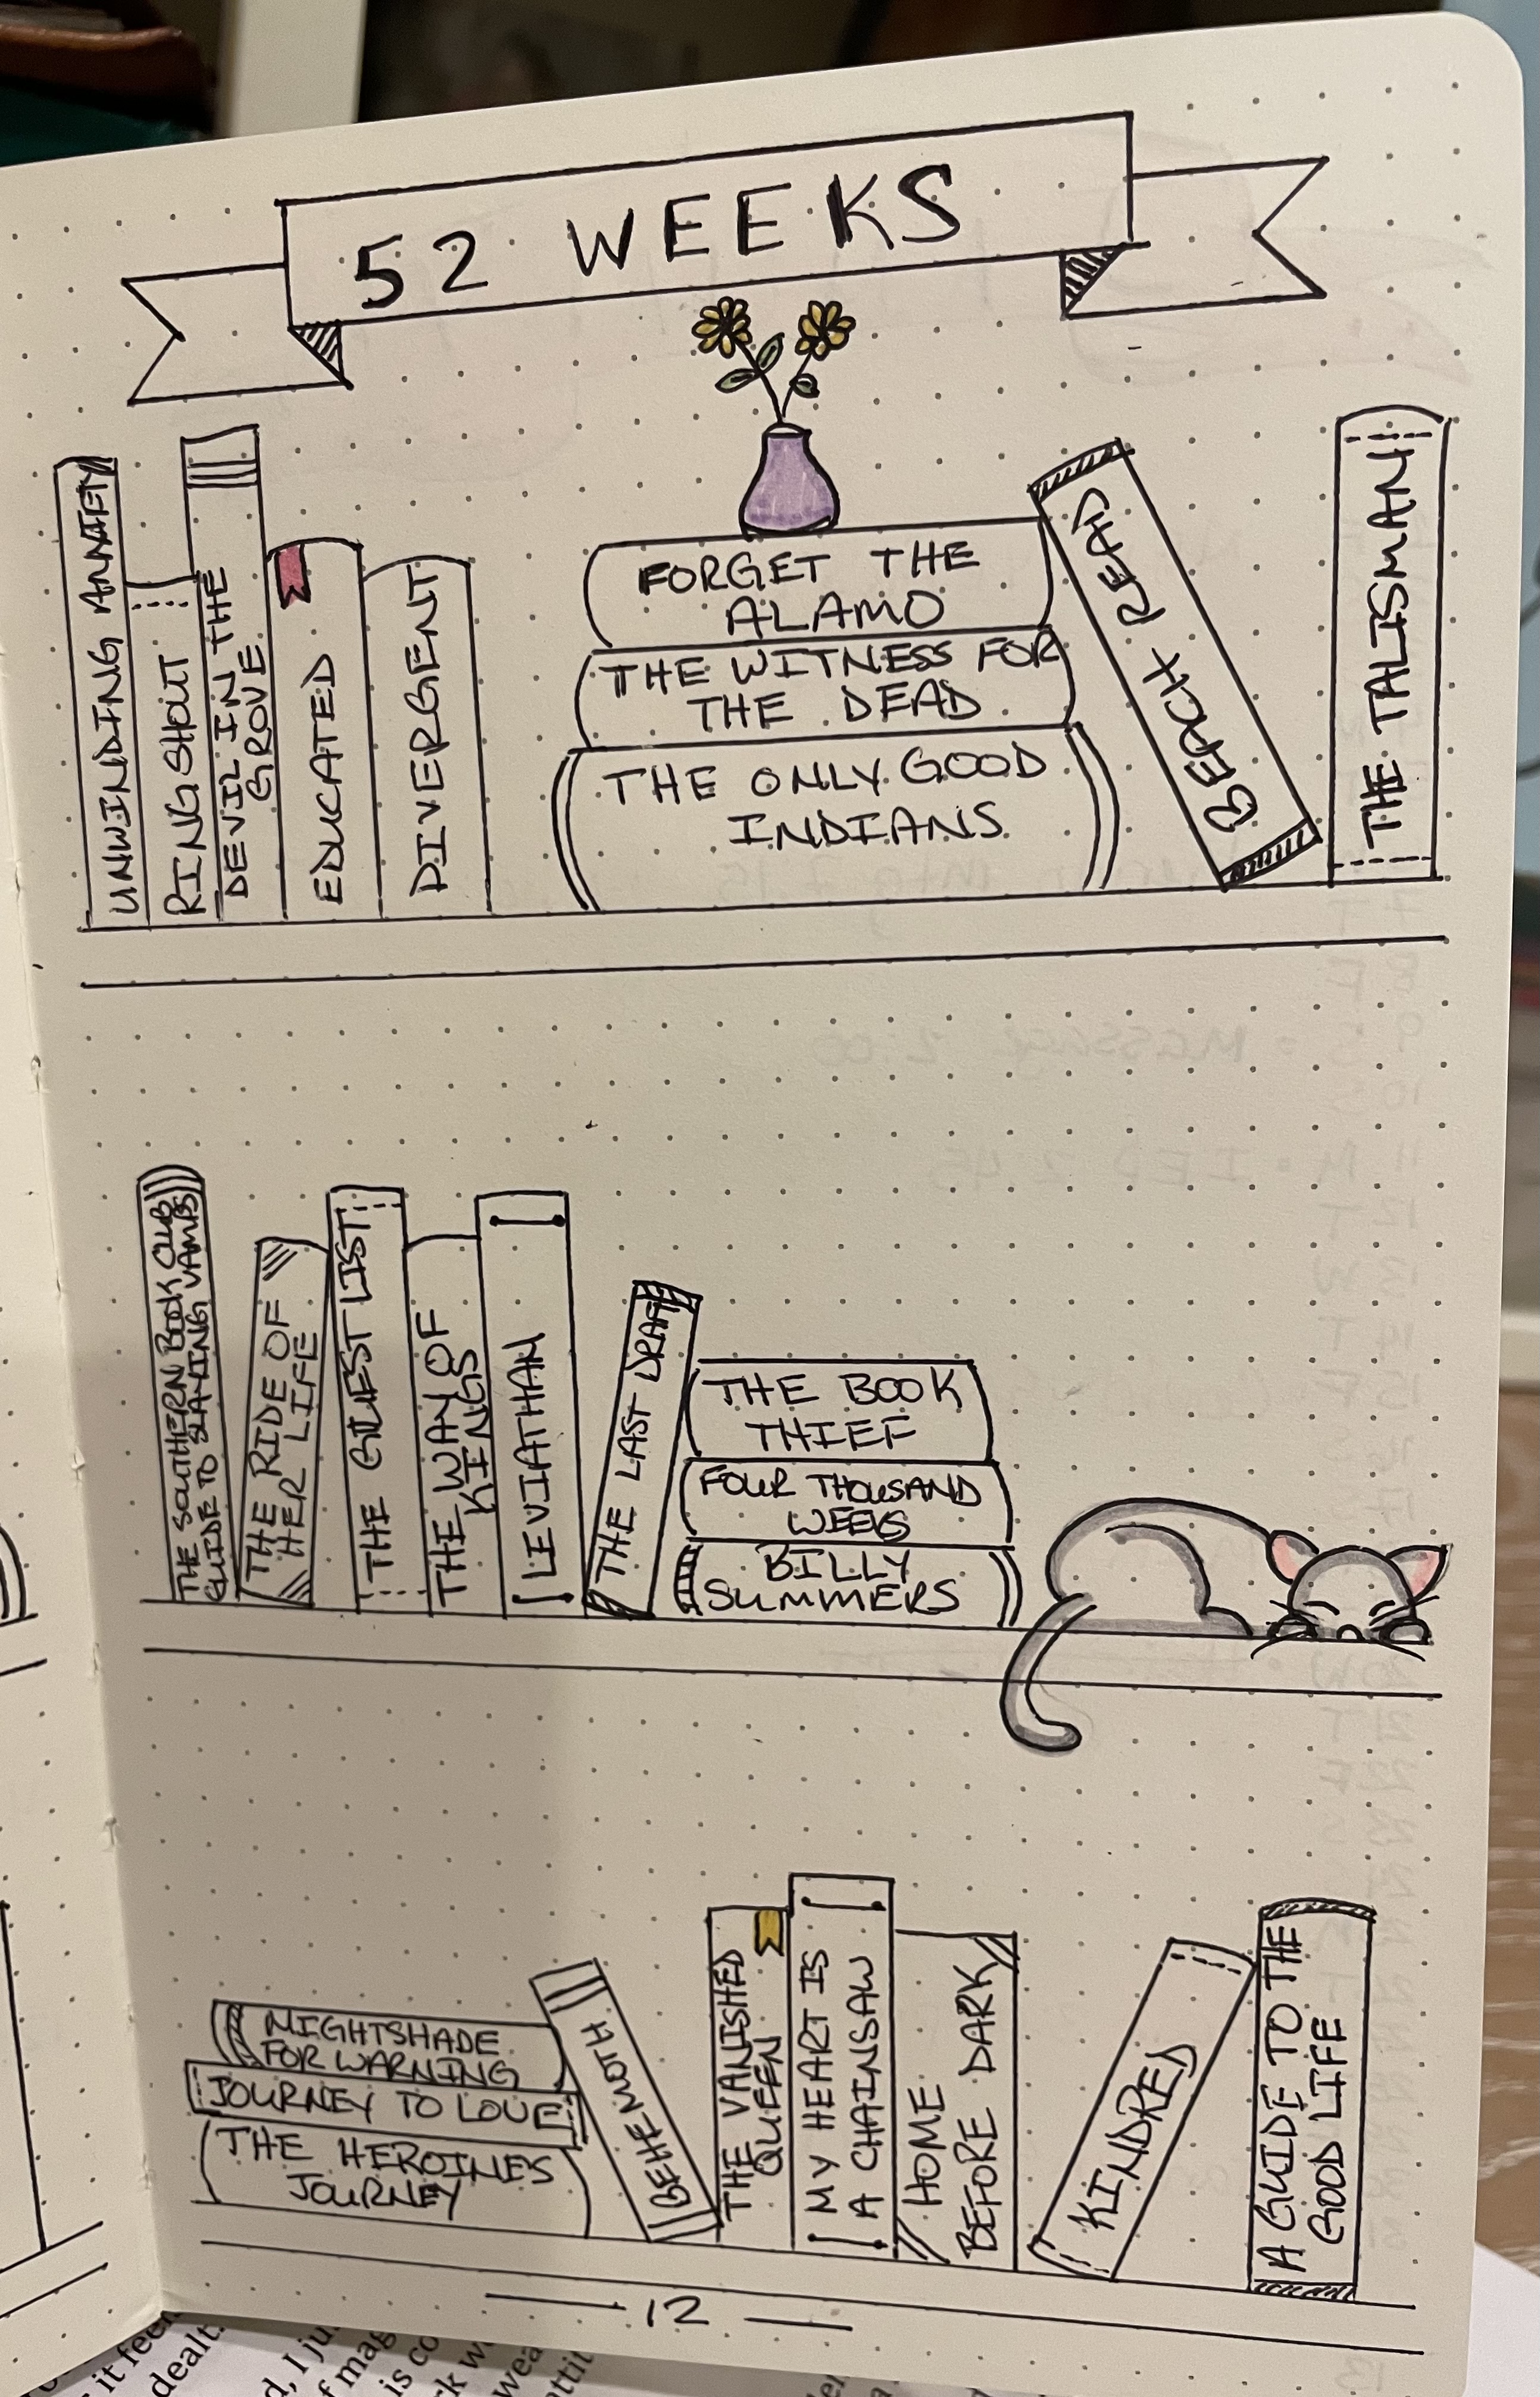 52 WEEKS
UNWINDING ANXIETY
RING SHOUT
DEVIL IN THE
GROVE
EDUCATED
DIVERGENT
FORGET THE
ALAMO
THE WITNESS FOR
THE DEAD
THE ONLY GOOD
INDIANS
BEACH READ
THE TALISMAN
THE SOUTHERN BOOK CLUB
GUIDE TO SLAYING VAMPS
THE RIDE OF
HER LIFE
THE GUEST LIST
THE WAY OF
KINGS
LEVIATHAN
THE LAST DRAFT
THE BOOK
THIEF
FOUR THOUSAND
WEEKS
BILLY
SUMMERS
NIGHTSHADE
FOR WARNING
JOURNEY TO LOVE
THE HEROINE'S
JOURNEY
BEHEMOTH
THE VANISHED
QUEEN
MY HEART IS
A CHAINSAW
HOME
BEFORE DARK
KINDRED
A GUIDE TO THE
GOOD LIFE
12
it feel
dealt.